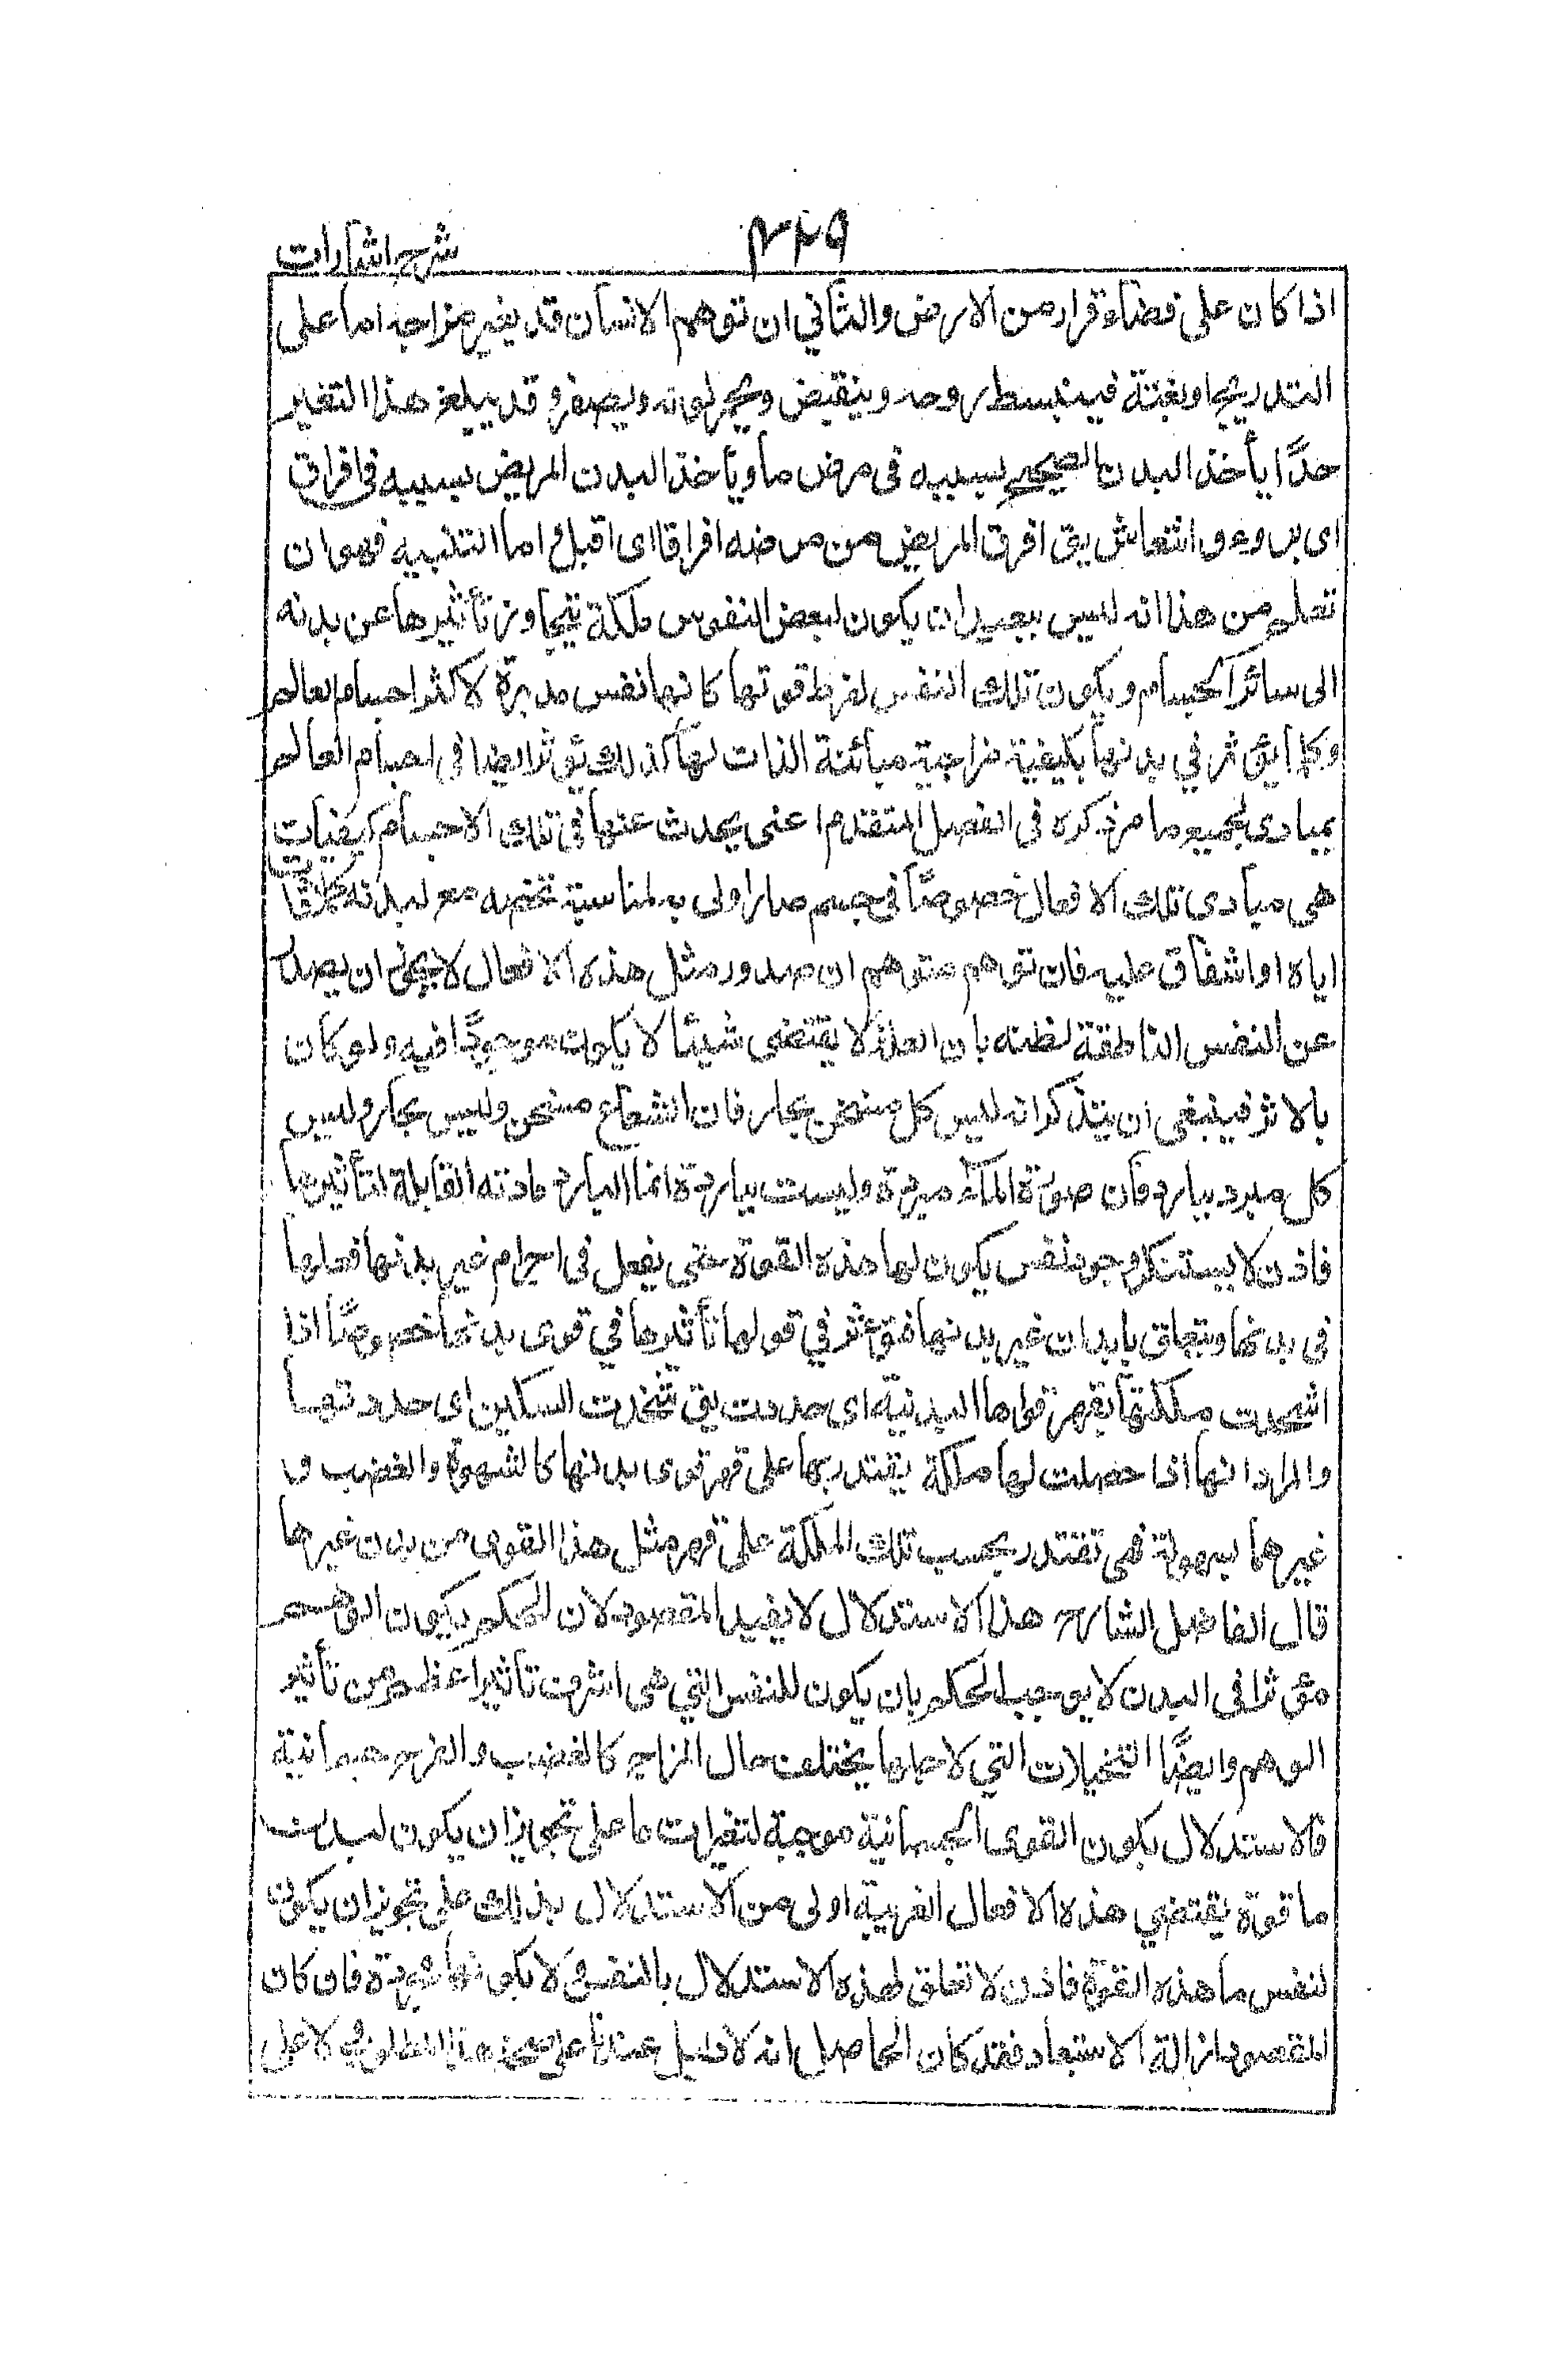 ۳۴۹
شرح اشارات
اذا كان على فضاء و قرار من الارض والثاني ان توهم الانسان قد يغير مزاجه اما على
التدريج او بغتة فينبسط روحه وينقبض ويحمر لونه ويصفر و قد يبلغ هذا التغير
حدًّا يأخذ البدن الصحيح بسببه فى مرض ما ويأخذ البدن المريض بسببه فى افراق
اى برء و انتعاش يق افرق المريض من مرضه افراقا اى اقبل و اما التنبيه فهو ان
تعلم من هذا انه ليس ببعيد ان يكون لبعض النفوس ملكة يتجاوز تأثيرها عن بدنه
الى سائر الاجسام و يكون تلك النفس لفرط قوتها كانها نفس مدبرة لاكثر اجسام العالم
وكما يؤثر في بدنها بكيفية مزاجية مبائنة الذات لها كذلك يؤثر ايضا فى اجسام العالم
بمبادى لجميع ما مر ذكره فى الفصل المتقدم اعنى يحدث عنها فى تلك الاجسام كيفيات
هى مبادى تلك الافعال خصوصًا فى جسم صار اولى به لمناسبة تخصه مع بدنه
اياه او اشفاق عليه فان توهم متوهم ان صدور مثل هذه الافعال لا يجوز ان يصدر
عن النفس الناطقة لظنه بان العلة لا يقتضى شيئًا لا يكون موجودًا فيه و لو كان
بالاثر فينبغى ان يتذكر انه ليس كل مسخن بحار فان الشعاع مسخن وليس بحار و ليس
كل مبرد ببارد فان صورة الماء مبردة وليست بباردة انما البارد مادته القابلة لتأثيرها
فاذن لا يستنكر وجود نفس يكون لها هذه القوة حتى يفعل فى اجرام غير بدنها فعلها
فى بدنها ويتعلق بابدان غير بدنها فتؤثر في قولها تأثيرها في قوى بدنها خصوصًا اذا
اشحذت ملكتها بقهر قواها البدنية اى حددت يق شحذت السكين اى حددتها
والمراد انها اذا حصلت لها ملكة يقتدر بها على قهر قوى بدنها كالشهوة و الغضب و
غيرهما بسهولة فهى تقتدر بحسب تلك الملكة على قهر مثل هذا القوى من بدن غيرها
قال الفاضل الشارح هذا الاستدلال لا يفيد المقصود لان الحكم بكون الوهم
مؤثرا فى البدن لا يوجب الحكم بان يكون للنفس التي هى اشرف تأثيرا عظم من تأثير
الوهم و ايضًا التخيلات التي لاجلها يختلف حال المزاج كالغضب و الفرح جسمانية
فالاستدلال بكون القوى الجسمانية موجبة لتغيرات ما على تجويز ان يكون لبدن
ما قوة يقتضي هذه الافعال الغريبة اولى من الاستدلال بذلك على تجويز ان يكون
لنفس ما هذه القوة فاذن لا تعلق لهذه الاستدلال بالنفس و لا بكونها مجردة فان كان
المقصود ازالة الاستبعاد فقد كان الحاصل انه لا دليل عندنا على صحة هذا المطلوب و لا على